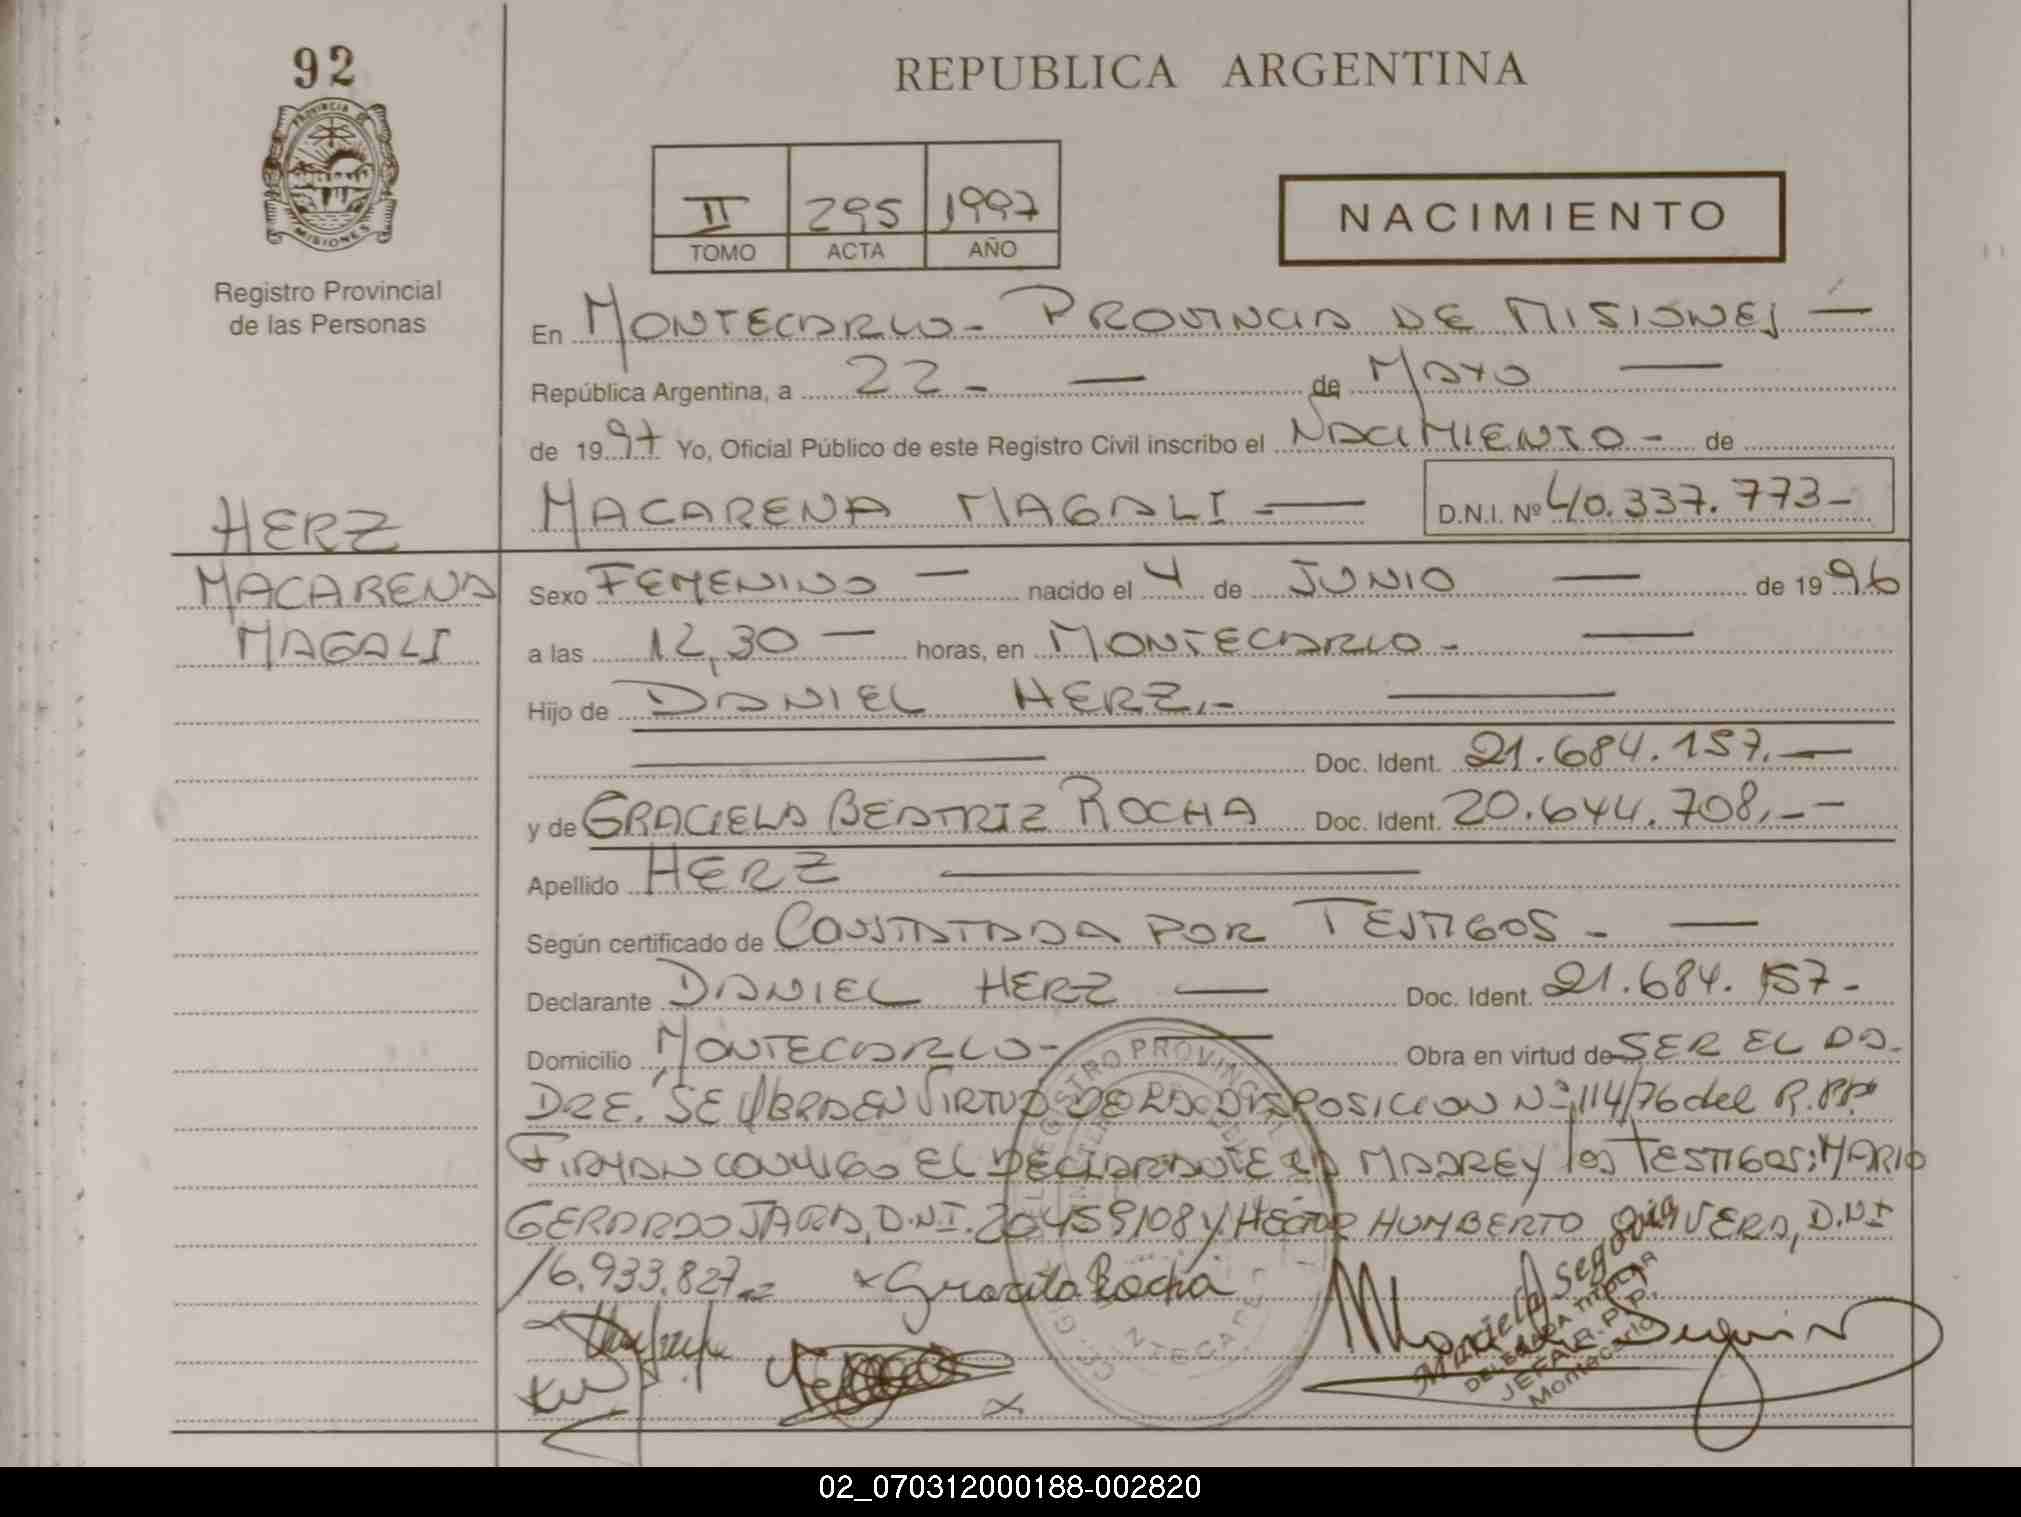 92
PROVINCIA DE MISIONES
Registro Provincial
de las Personas
HERZ
MACARENA
MAGALI
REPUBLICA ARGENTINA
II 295 1997
TOMO ACTA AÑO
NACIMIENTO
En MONTECARLO - PROVINCIA DE MISIONES —
República Argentina, a 22 - — de MAYO —
de 1997 Yo, Oficial Público de este Registro Civil inscribo el NACIMIENTO - de
MACARENA MAGALI - — D.N.I. Nº 40.337.773-
Sexo FEMENINO — nacido el 4 de JUNIO — de 1996
a las 12,30 — horas, en MONTECARLO - —
Hijo de DANIEL HERZ.- —
— Doc. Ident. 21.684.157.—
y de GRACIELA BEATRIZ ROCHA Doc. Ident. 20.644.708.- —
Apellido HERZ —
Según certificado de CONSTATADA POR TESTIGOS - —
Declarante DANIEL HERZ — Doc. Ident. 21.684.157-
Domicilio MONTECARLO- — Obra en virtud de SER EL PA-
DRE. SE LABRA EN VIRTUD DE LA DISPOSICION Nº 114/76 del R.PP.
FIRMAN CONMIGO EL DECLARANTE LA MADRE Y los TESTIGOS: MARIO
GERARDO JARA, D.N.I. 20459108 Y HECTOR HUMBERTO VERA, D.NI
16.933.827 x Graciela Rocha
Mariela Segovia
DELEGADA TITULAR
JEFA R.P.P.
Montecarlo
02_070312000188-002820